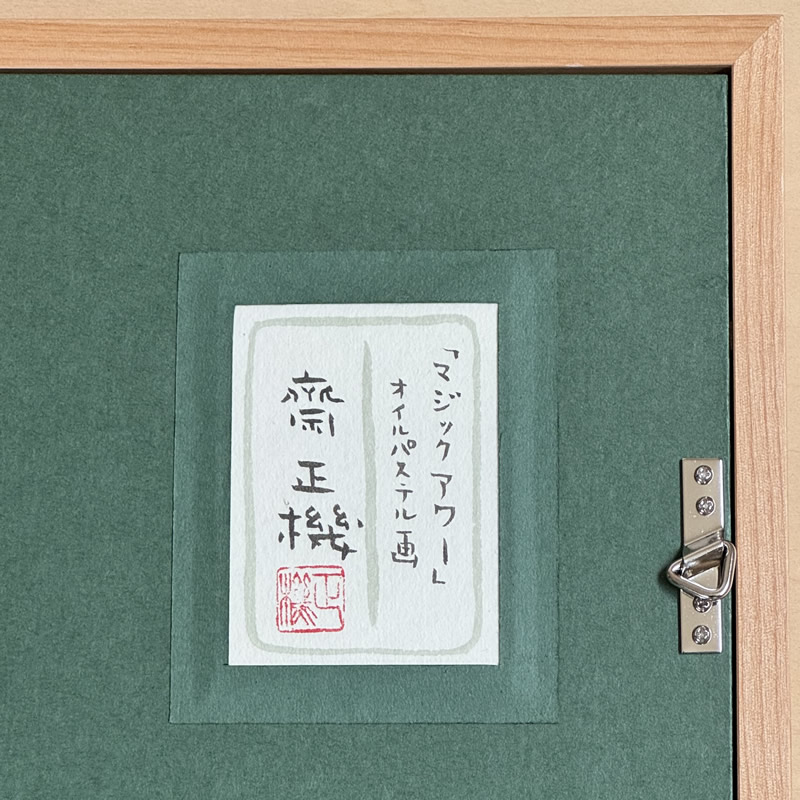 「マジックアワー」
オイルパステル画
齋正機
正機